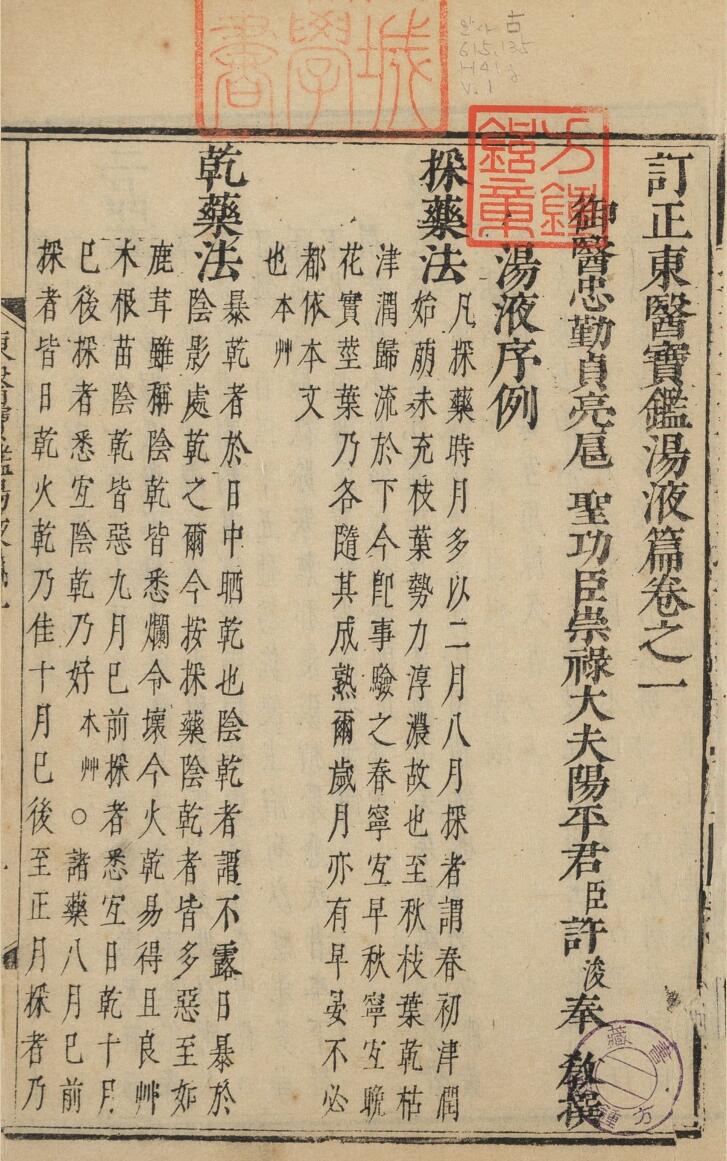 古
615.135
H41g
V.1
訂正東醫寶鑑湯液篇卷之一
御醫忠勤貞亮扈 聖功臣崇祿大夫陽平君臣許浚奉 敎撰
湯液序例
採藥法
凡採藥時月多以二月八月採者謂春初津潤
始萌未充枝葉勢力淳濃故也至秋枝葉乾枯
津潤歸流於下今卽事驗之春寧宐早秋寧宐晩
花實莖葉乃各隨其成熟爾歲月亦有早晏不必
都依本文
也本艸
乾藥法
暴乾者於日中晒乾也陰乾者謂不露日暴於
陰影處乾之爾今按採藥陰乾者皆多惡至如
鹿茸雖稱陰乾皆悉爛令壞今火乾易得且良艸
木根苗陰乾皆惡九月已前採者悉宐日乾十月
已後採者悉宐陰乾乃好本艸○諸藥八月已前
採者皆日乾火乾乃佳十月已後至正月採者乃